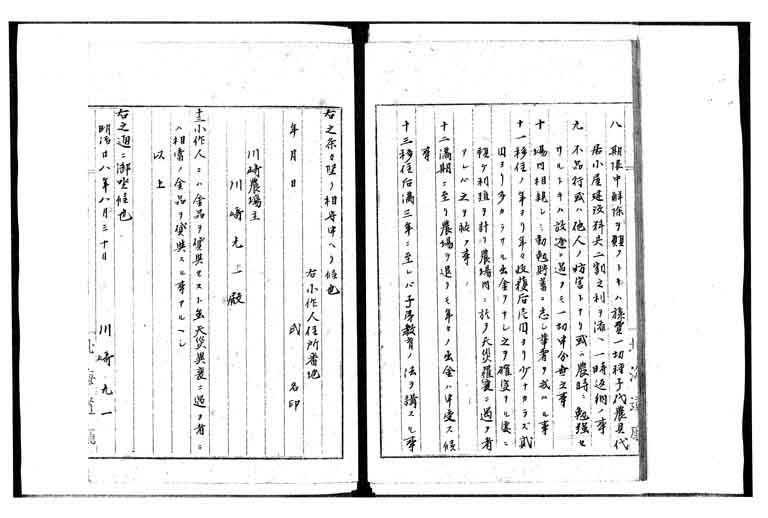 八 期限中解除ヲ願フトキハ旅費一切種子代農具代
居小屋建設料共二割之利ヲ添ヘ一時返納ノ事
九 不品行或ハ他人ノ妨害トナリ或ハ農時ニ勉強セ
サルトキハ放逐ニ遇フモ一切申分無之事
十 場内相親シミ勤勉貯蓄ニ志シ華奢ヲ戒ムル事
十一 移住ノ年ヨリ年々收獲后
出金ヲナシ之ヲ確実ナル
預ケ利殖ヲ計リ農場内ニ於テ天災罹災ニ遇フ者
アレバ之ヲ救フ事
十二 満期ニ至リ農場ヲ退クモ年々ノ出金ハ申受ス候
事
十三 移住后満三年ニ至レバ子弟教育ノ法ヲ講スル事
右之条々堅ク相守申ヘク候也
右小作人住所番地
年月日 氏 名印
川崎農場主
川崎九一殿
十三 小作人ニハ金品ヲ貸與セスト雖天災異変ニ遇フ者ニ
ハ相當ノ金品ヲ貸與スル事アルヘシ
以上
右之通ニ御坐候也
明治廿八年八月三十日 川崎九一
北海道廳
北海道廳